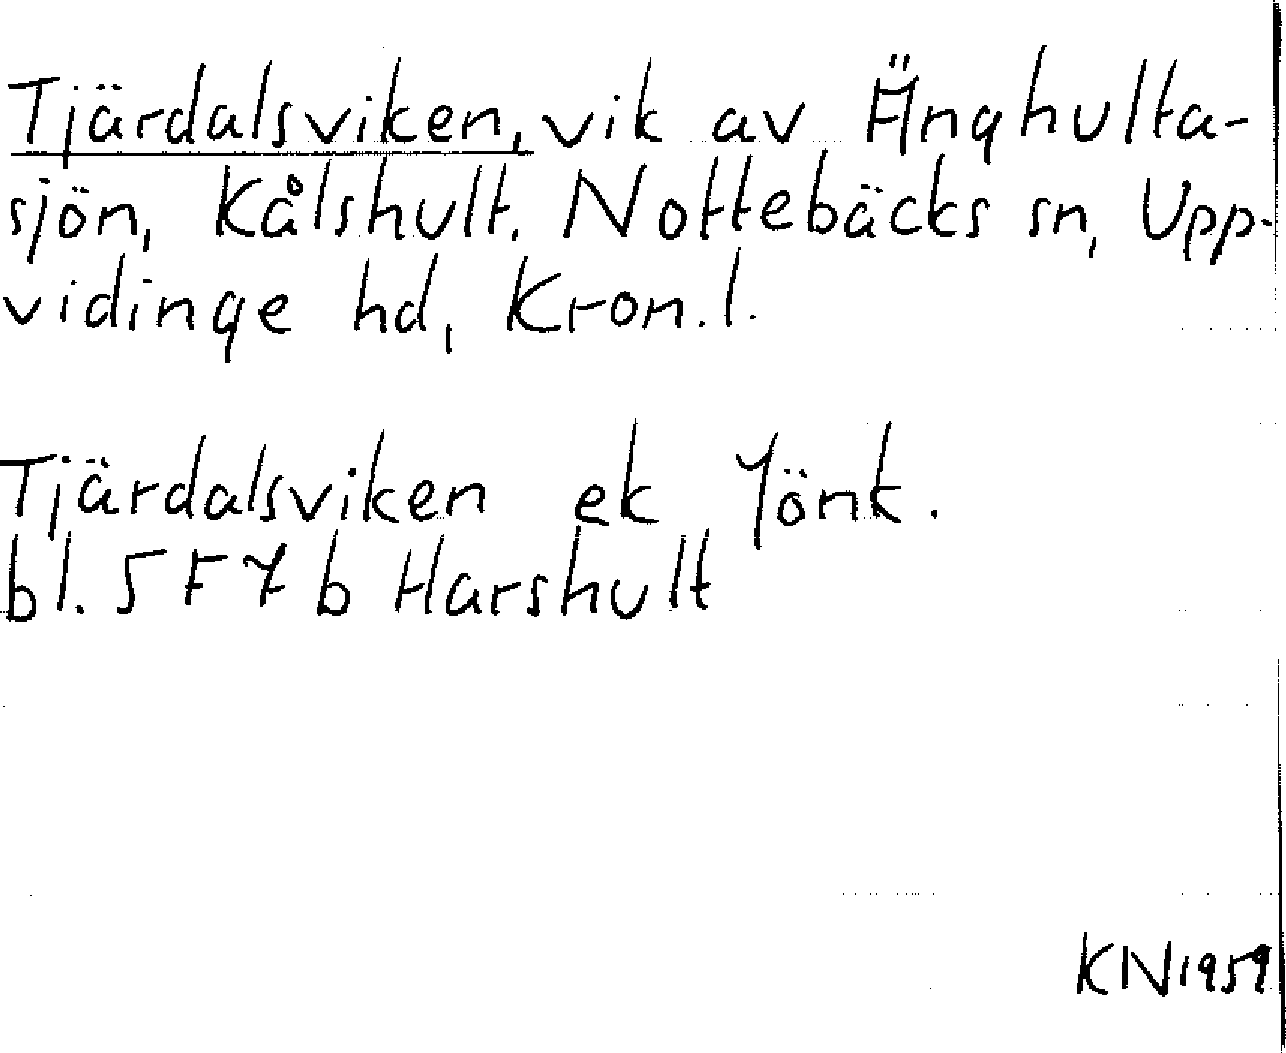 Tjärdalsviken, vik av Änghulta-
sjön, Kålshult. Nottebäcks sn, Upp-
vidinge hd, Kron.l.
Tjärdalsviken ek Jönk.
bl. 5 F 7 b Harshult
KN 1959